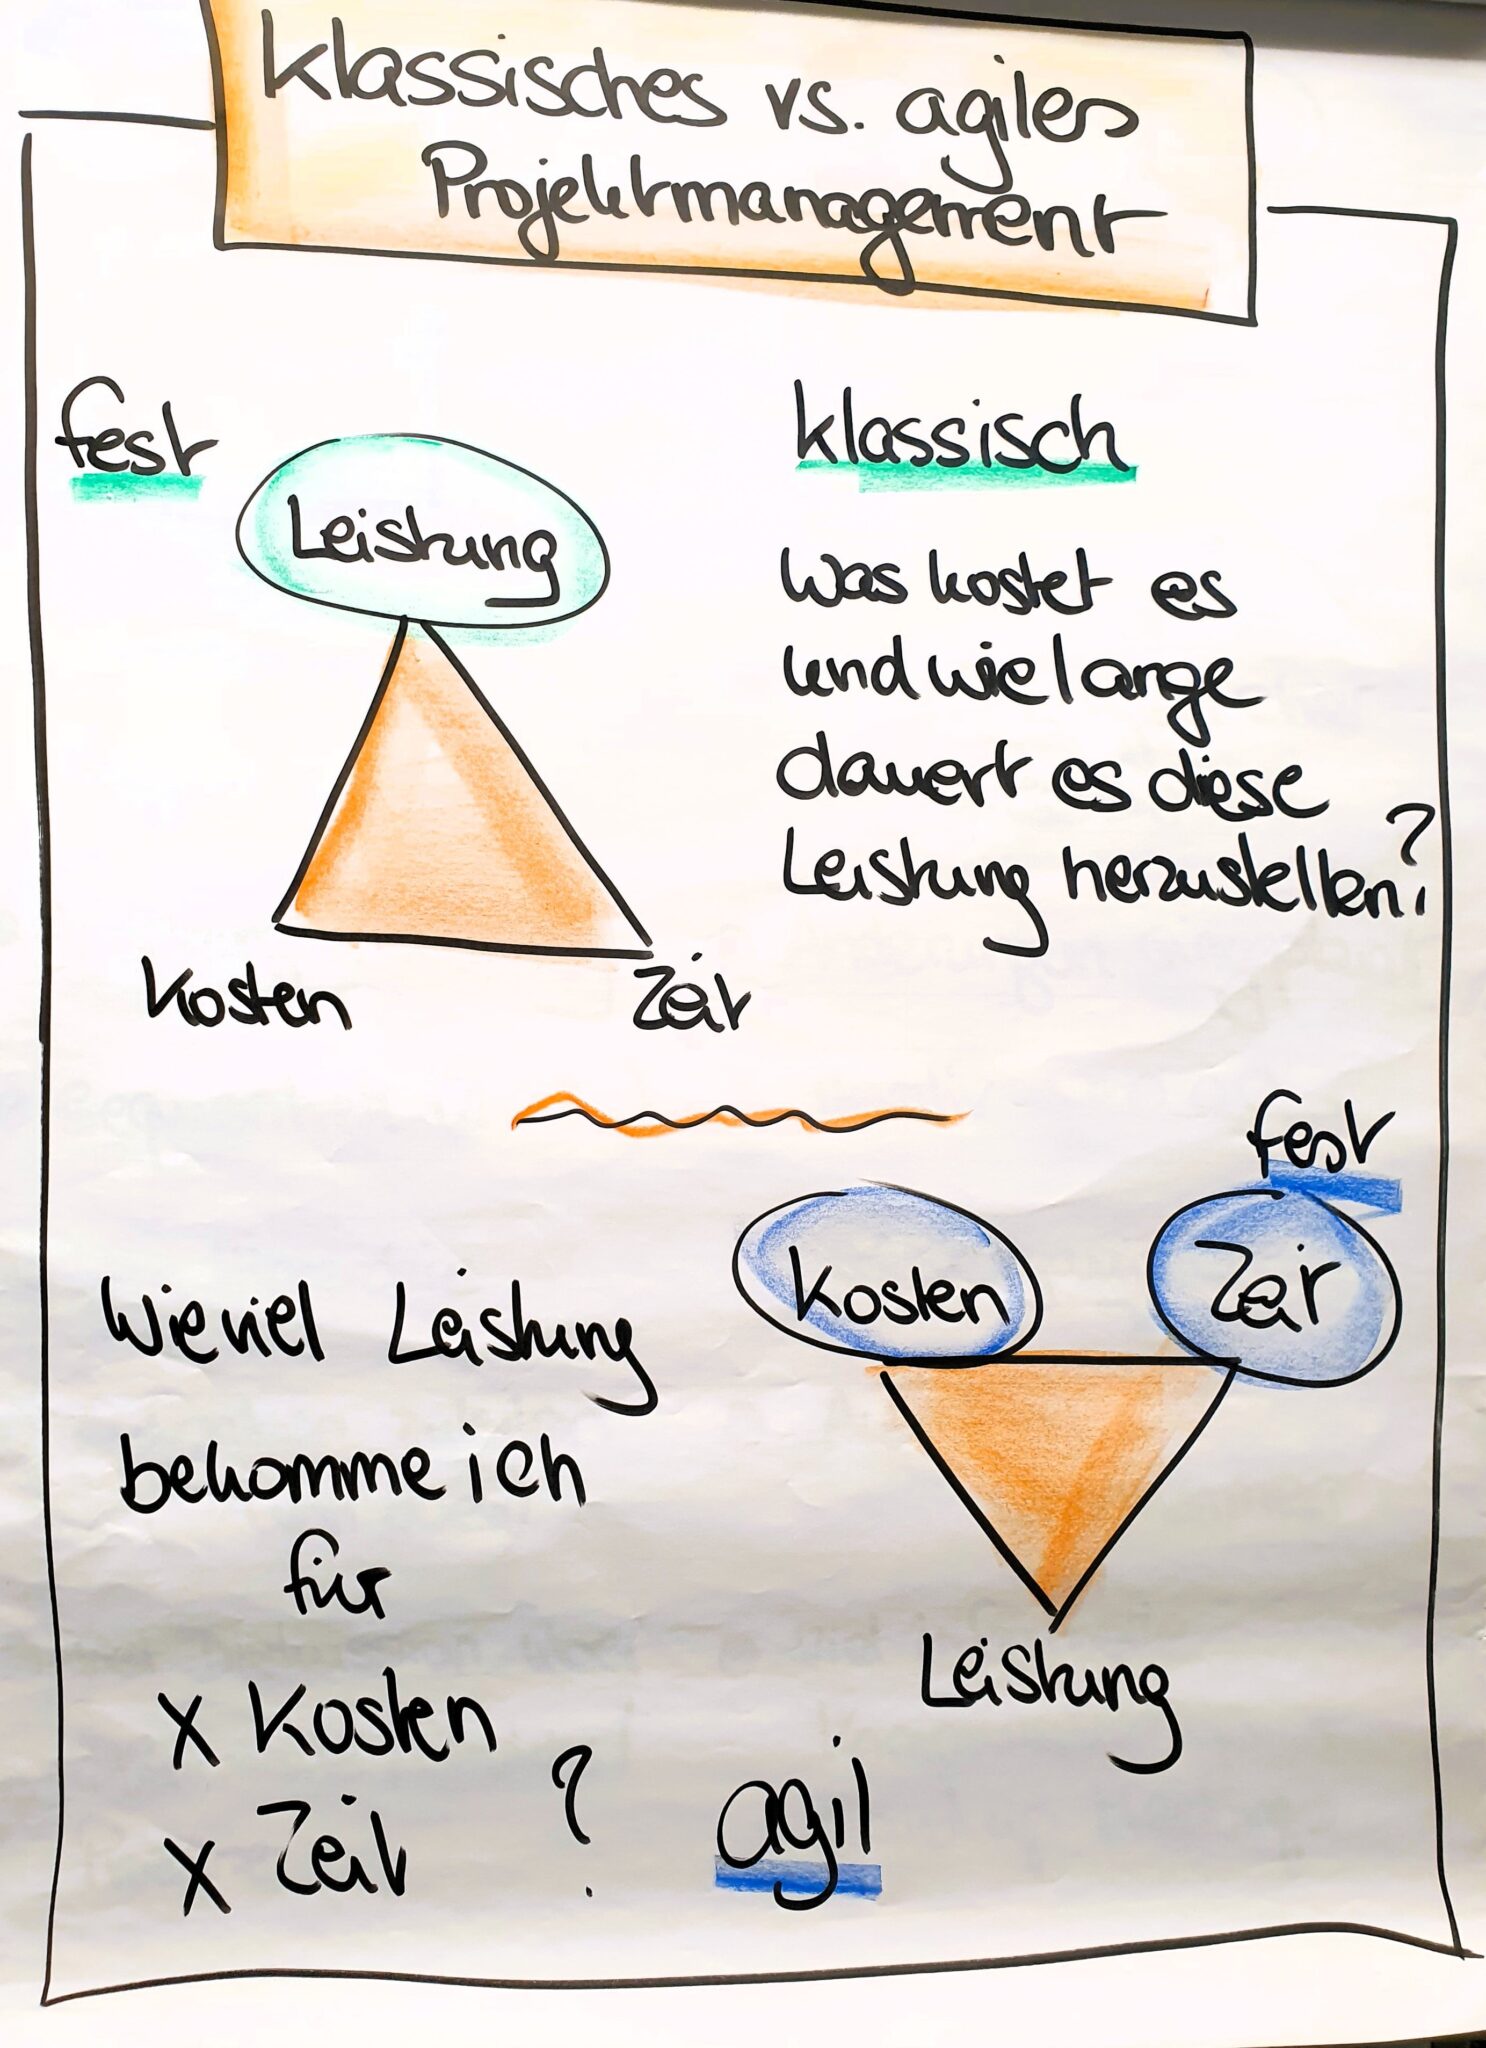 Klassisches vs. agiles
Projektmanagement
fest
Leistung
Kosten
Zeit
klassisch
Was kostet es
und wie lange
dauert es diese
Leistung herzustellen?
fest
Kosten
Zeit
Leistung
Wie viel Leistung
bekomme ich
für
X Kosten
X Zeit ?
agil